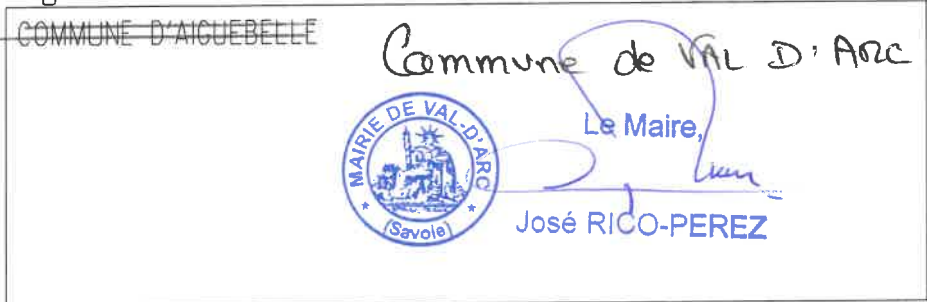 COMMUNE D'AIGUEBELLE
Commune de VAL D'ARC
Le Maire,
MAIRIE DE VAL-D'ARC
(Savoie)
José RICO-PEREZ